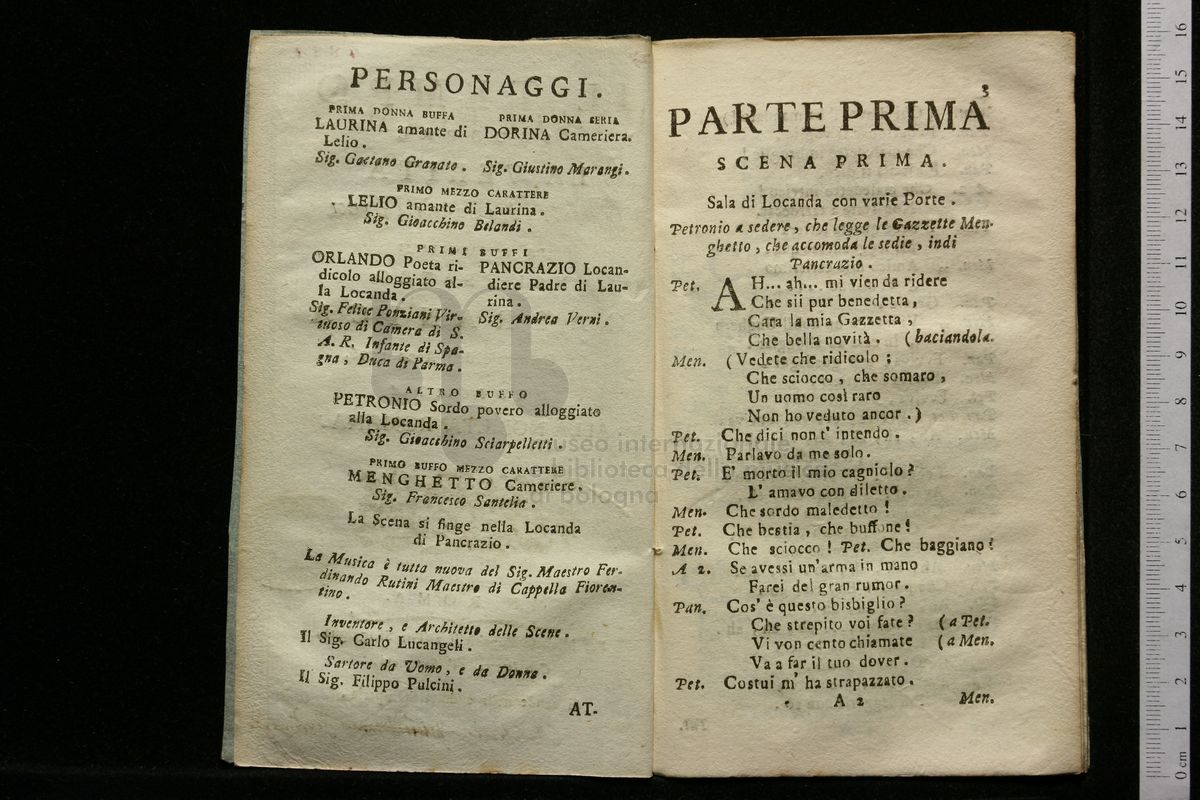 PERSONAGGI.
PRIMA DONNA BUFFA
LAURINA amante di
Lelio.
Sig. Gaetano Granato.
PRIMA DONNA SERIA
DORINA Cameriera.
Sig. Giustino Marangi.
PRIMO MEZZO CARATTERE
LELIO amante di Laurina.
Sig. Gioacchino Belandi.
PRIMI BUFFI
ORLANDO Poeta ri-
dicolo alloggiato al-
la Locanda.
Sig. Felice Ponziani Vir-
tuoso di Camera di S.
A. R. Infante di Spa-
gna, Duca di Parma.
PANCRAZIO Locan-
diere Padre di Lau-
rina.
Sig. Andrea Verni.
ALTRO BUFFO
PETRONIO Sordo povero alloggiato
alla Locanda.
Sig. Gioacchino Sciarpelletti.
PRIMO BUFFO MEZZO CARATTERE
MENGHETTO Cameriere.
Sig. Francesco Santelia.
La Scena si finge nella Locanda
di Pancrazio.
La Musica è tutta nuova del Sig. Maestro Fer-
dinando Rutini Maestro di Cappella Fioren-
tino.
Inventore, e Architetto delle Scene.
Il Sig. Carlo Lucangeli.
Sartore da Uomo, e da Donna.
Il Sig. Filippo Pulcini.
AT-
3
PARTE PRIMA
SCENA PRIMA.
Sala di Locanda con varie Porte.
Petronio a sedere, che legge le Gazzette Men-
ghetto, che accomoda le sedie, indi
Pancrazio.
Pet. AH... ah... mi vien da ridere
Che sii pur benedetta,
Cara la mia Gazzetta,
Che bella novità. (baciandola.
Men. (Vedete che ridicolo;
Che sciocco, che somaro,
Un uomo così raro
Non ho veduto ancor.)
Pet. Che dici non t' intendo.
Men. Parlavo da me solo.
Pet. E' morto il mio cagniolo?
L' amavo con diletto.
Men. Che sordo maledetto!
Pet. Che bestia, che buffone!
Men. Che sciocco! Pet. Che baggiano!
A 2. Se avessi un'arma in mano
Farei del gran rumor.
Pan. Cos' è questo bisbiglio?
Che strepito voi fate? (a Pet.
Vi von cento chiamate (a Men.
Va a far il tuo dover.
Pet. Costui m' ha strapazzato.
A 2
Men.
museo internazionale
biblioteca della musica
di bologna
0 cm 1 2 3 4 5 6 7 8 9 10 11 12 13 14 15 16